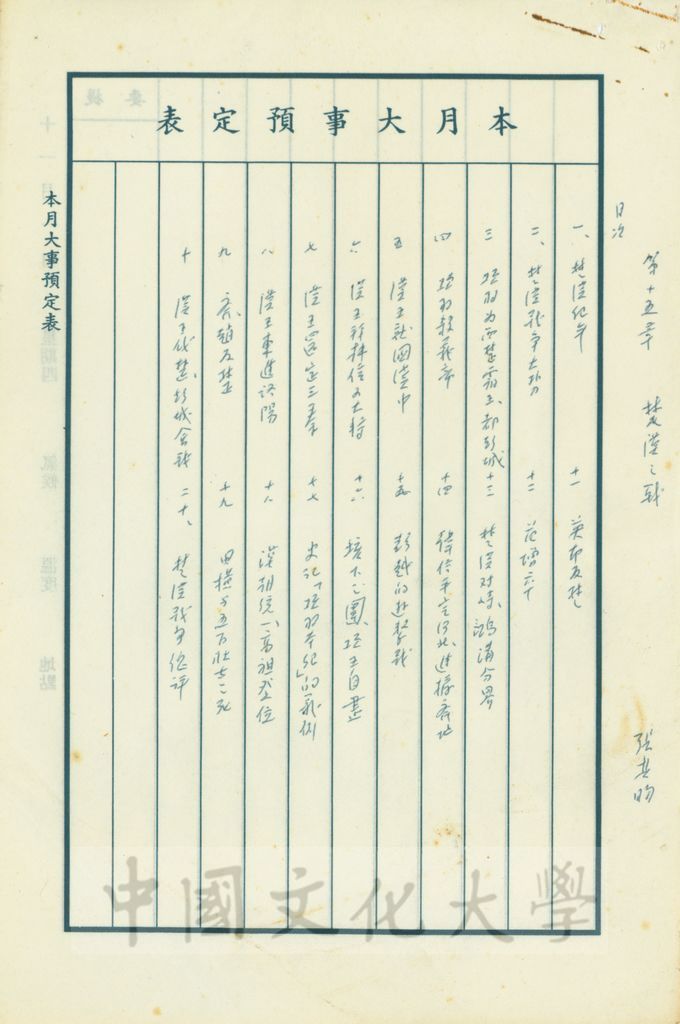 第十五章 楚漢之戰 張其昀
目次
本月大事預定表
一、楚漢紀年 十一 英布反楚
二、楚漢戰爭大勢 十二 范增之卒
三 項羽為西楚霸王、都彭城 十三 楚漢對峙、鴻溝分界
四 項羽殺義帝 十四 韓信平定河北、進據齊地
五 漢王就國漢中 十五 彭越的游擊戰
六 漢王拜韓信為大將 十六 垓下之圍、項王自盡
七 漢王還定三秦 十七 史記「項羽本紀」的義例
八 漢王東進洛陽 十八 漢朝統一、高祖登位
九 齊、趙反楚 十九 田橫與五百壯士之死
十 漢王伐楚、彭城會戰 二十、楚漢戰爭總評
本月大事預定表
中國文化大學